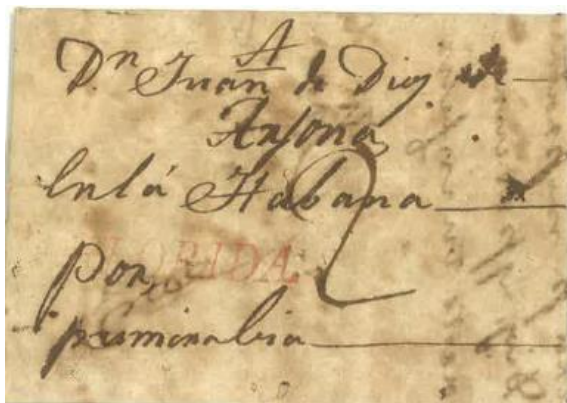 A
Dn Juan de Dios
Ansona
En lá Habana
2
FLORIDA
Por
primera bia